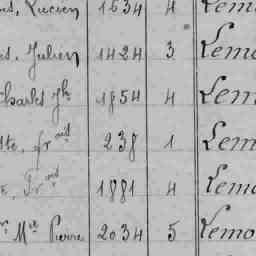 Lucien 1634 4 Lem
Julien 1424 3 Lemo
Charles Jh 1854 4 Lem
te, frois 238 1 Lem
e, Frois 1881 4 Lemo
Mie Pierre 2034 5 Lemo